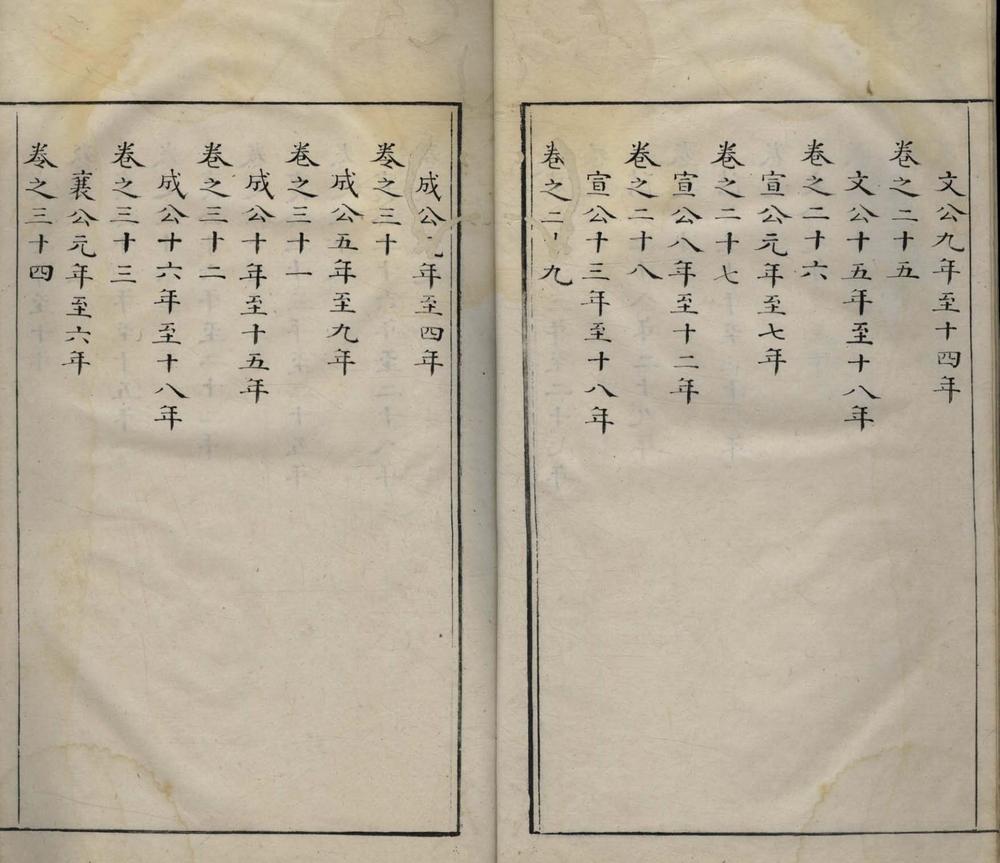 文公九年至十四年
卷之二十五
文公十五年至十八年
卷之二十六
宣公元年至七年
卷之二十七
宣公八年至十二年
卷之二十八
宣公十三年至十八年
卷之二十九
成公元年至四年
卷之三十
成公五年至九年
卷之三十一
成公十年至十五年
卷之三十二
成公十六年至十八年
卷之三十三
襄公元年至六年
卷之三十四